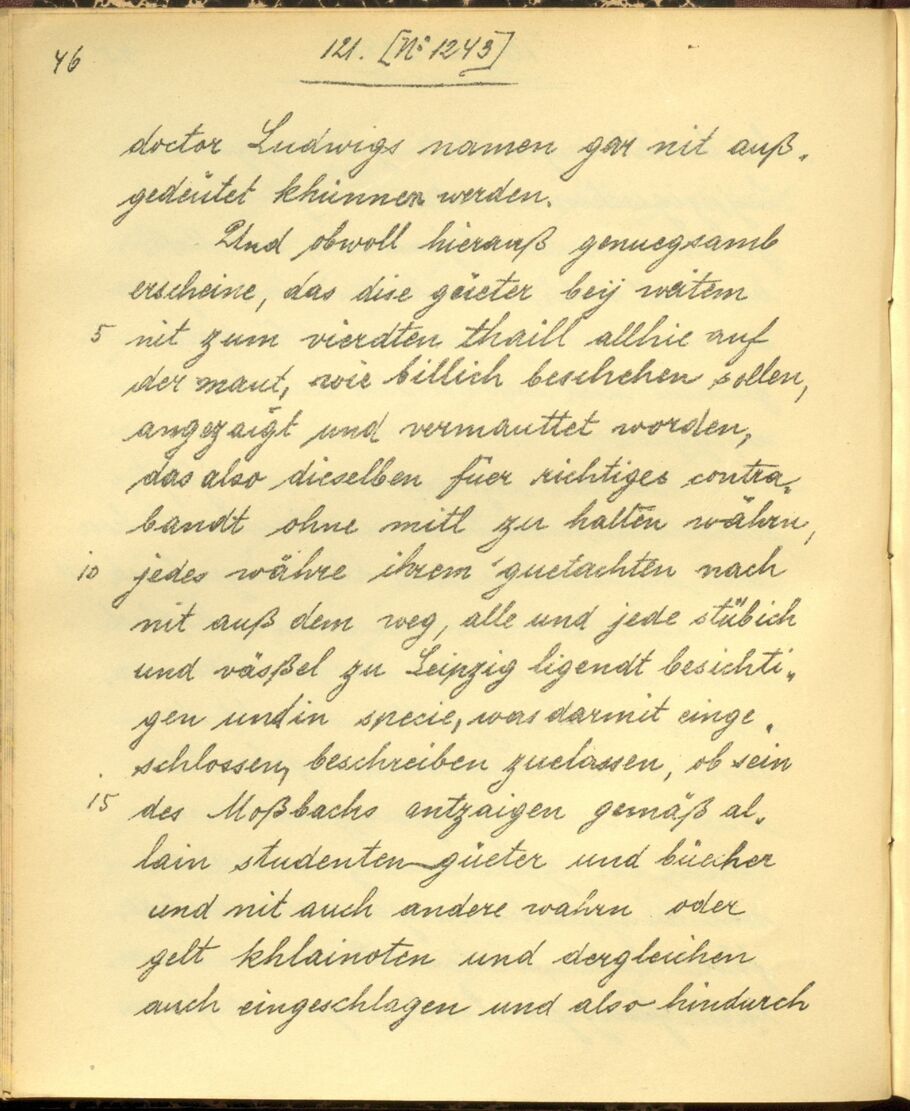 46
121. [No 1243]
doctor Ludwigs namen gar nit auß„
gedeütet khünnen werden.
Und obwoll hierauß genuegsamb
erscheine, das dise güeter beij weitem
5 nit zum vierdten thaill allhie auf
der maut, wie billich beschehen sollen,
angezaigt und vermauttet worden,
das also dieselben füer richtiges contra„
bandt ohne mitl zu halten währn,
10 jedes währe ihrem guetachten nach
nit auß dem weg, alle und jede stübich
und väsßel zu Leipzig ligendt besichti„
gen und in specie, was darmit einge„
schlossen, beschreiben zuelassen, ob sein
15 des Moßbachs antzaigen gemäß al„
lain studenten güeter und büecher
und nit auch andere wahrn oder
gelt khlainoten und dergleichen
auch eingeschlagen und also hindurch